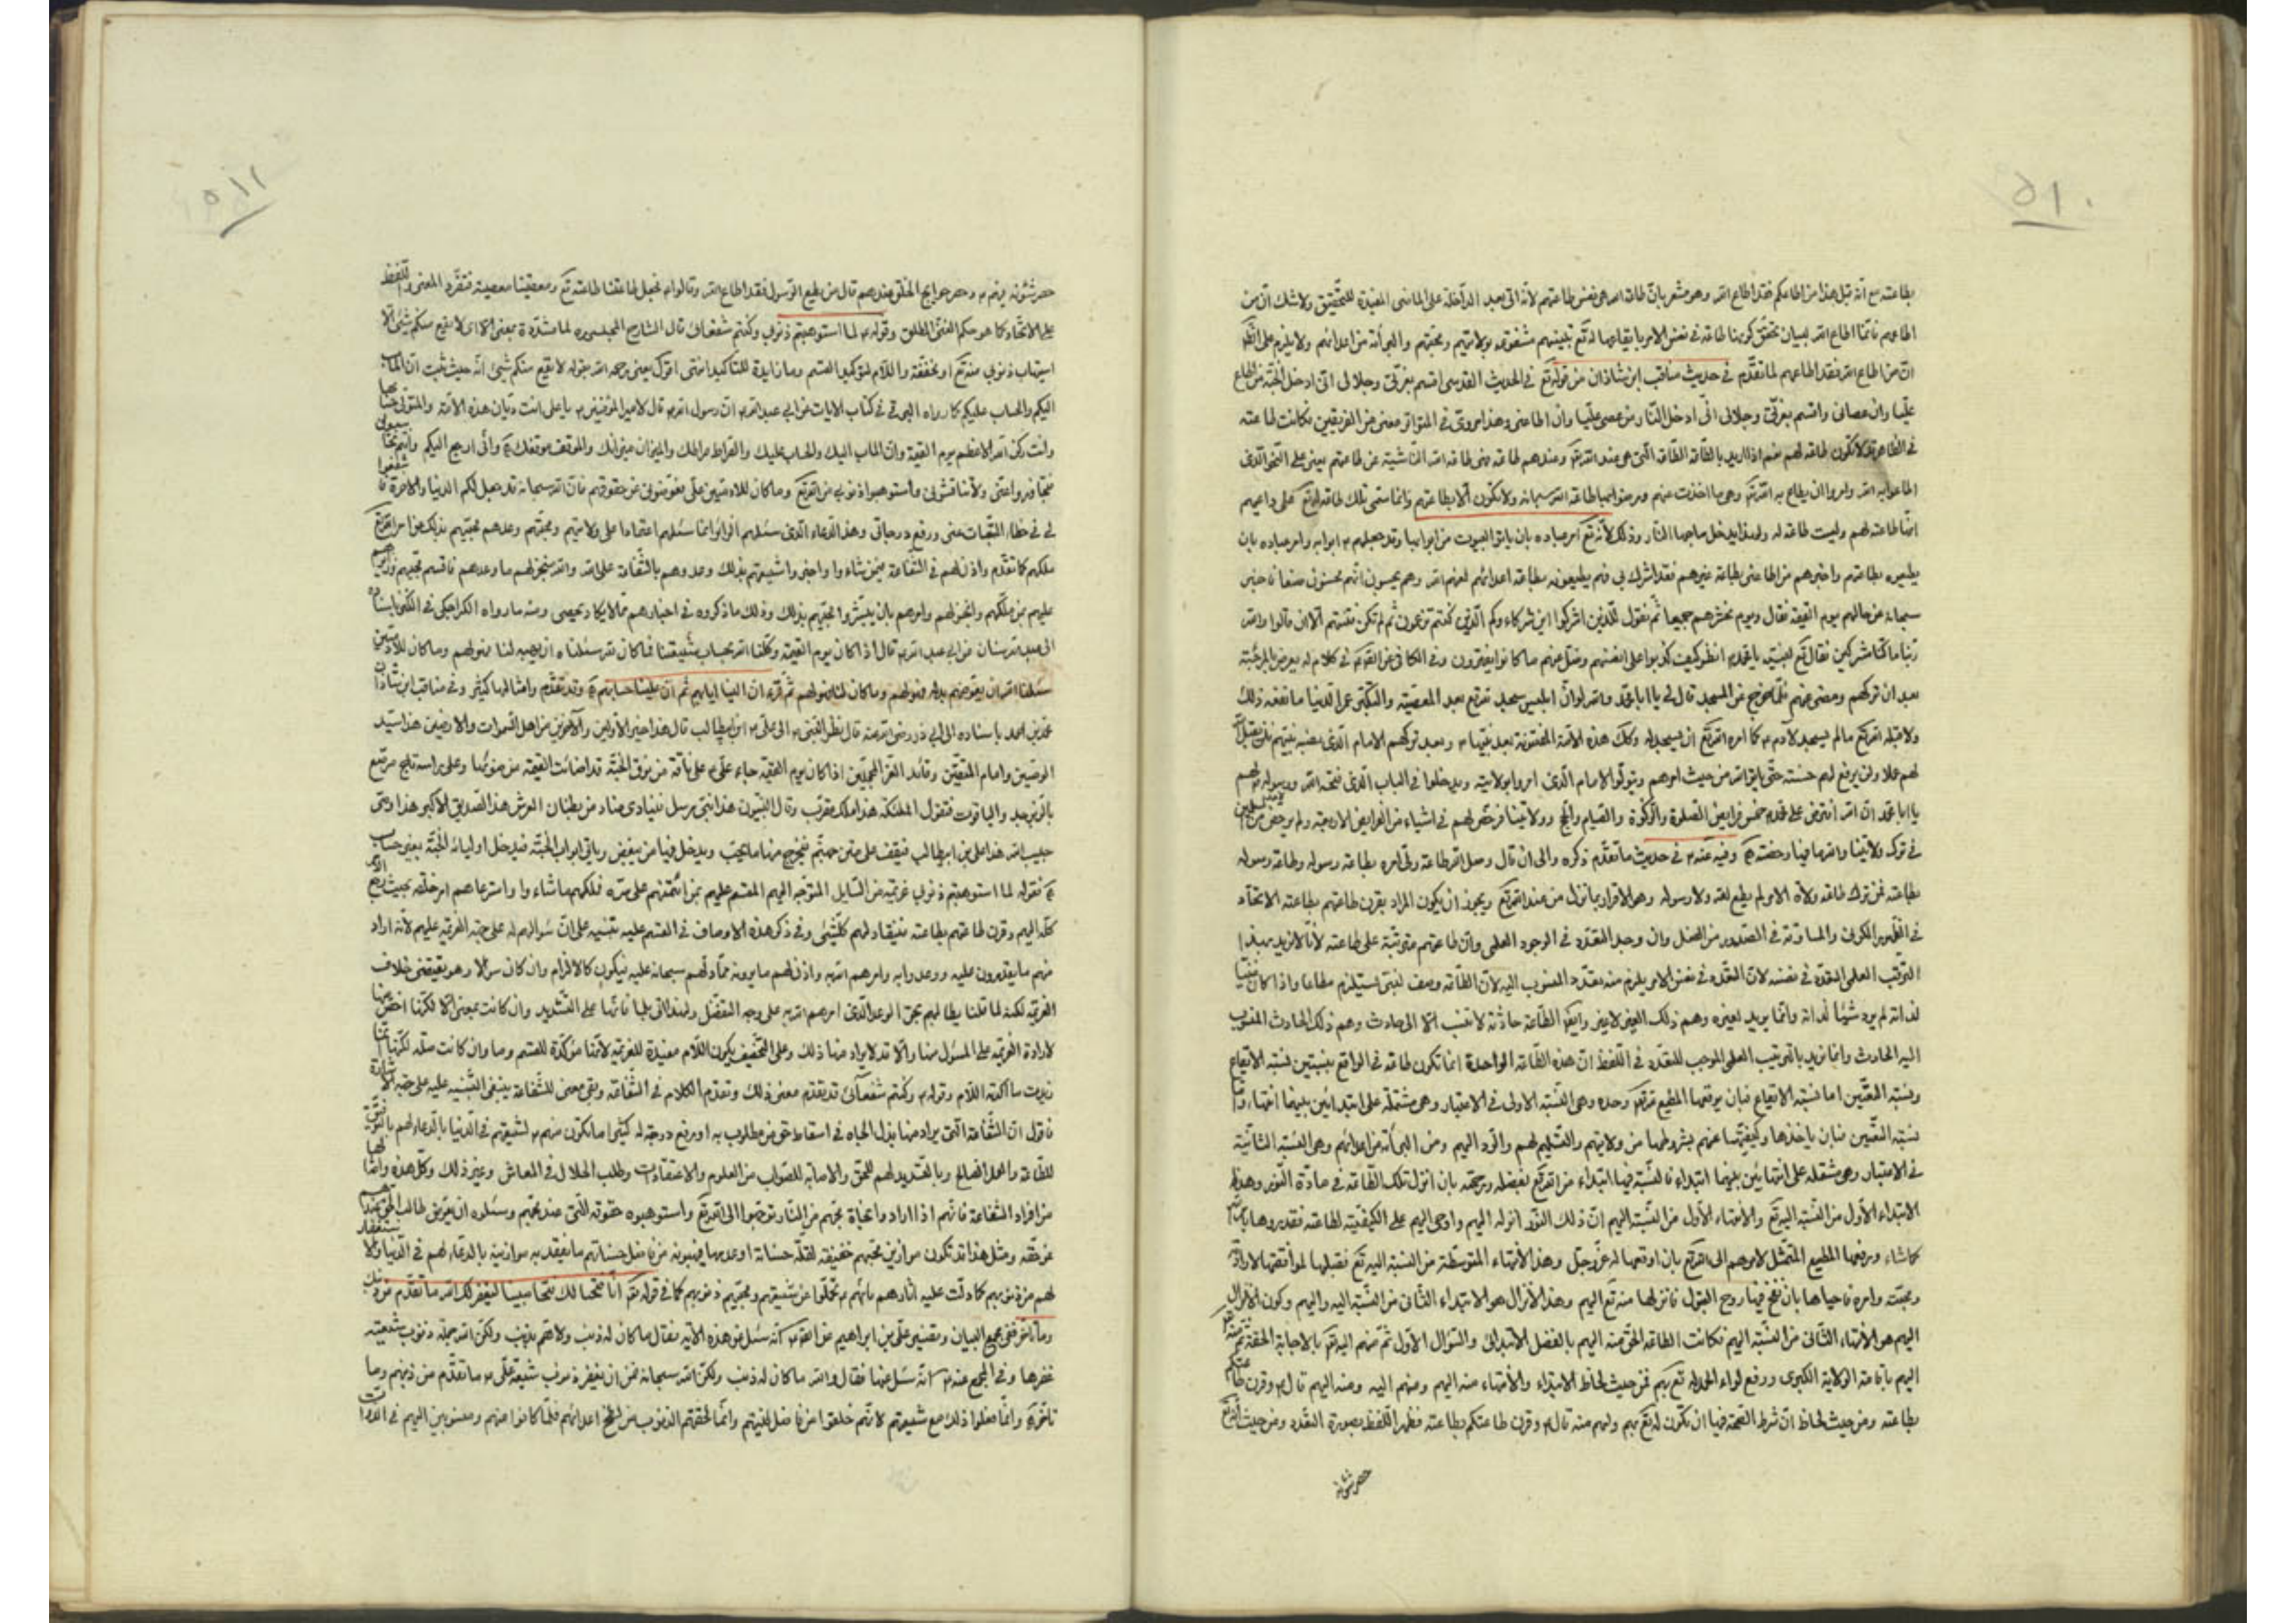 ٥١٠
بطاعته مع انه قبل هذا من اطاعكم فقد اطاع الله وهو مشعر بان طاعة الله هى نفس طاعتهم لانه اتى بعد الداخلة على الماضى المفيدة للتحقيق ولا شك ان من
اطاعهم فانما اطاع الله لبيان تحقق كونها طاعة فى نفس الامر بايقاعها له تع مشفوعة بولايتهم ومحبتهم والبرائة من اعدائهم ولا يلزم على
ان من اطاع الله فقد اطاعهم لما تقدم فى حديث مناقب ابن شاذان من قوله تع فى الحديث القدسى اقسم بعزتى وجلالى انى ادخل الجنة من اطاع
عليا وان عصانى واقسم بعزتى وجلالى انى ادخل النار من عصى عليا وان اطاعنى وهذا مروى فى المتواتر معنى من الفريقين فكانت طاعته
فى الظاهر قد لا تكون طاعة لهم نعم اذا اريد بالطاعة الطاعة التى هى عند الله تع وعندهم طاعة فهى طاعة الله الناشية عن طاعتهم يعنى على النحو الذى
اطاعوا به الله وامروا ان يطاع به الله تع وهى ما اخذت عنهم ولا تكون الا بطاعتهم وانما سمى تلك طاعة الله تع على دعويهم
انها طاعته لهم وليست طاعة له ولهذا يدخل صاحبها النار وذلك لانه تع امر عباده بان ياتوا البيوت من ابوابها وقد جعلهم م ابوابه وامر عباده بان
يطيعوه بطاعتهم واخبرهم من اطاعنى بطاعة غيرهم فقد اشرك بى فهم يطيعونه بطاعة اعدائهم لعنهم الله وهم يحسبون انهم يحسنون صنعا فاخبر
سبحانه عن حالهم يوم القيمة فقال ويوم نحشرهم جميعا ثم نقول للذين اشركوا اين شركاؤكم الذين كنتم تزعمون ثم لم تكن فتنتهم الا ان قالوا والله
ربنا ما كنا مشركين فقال تع لنبيه يا محمد انظر كيف كذبوا على انفسهم وضل عنهم ما كانوا يفترون وفى الكافى عن فى كلام له يعرض المرجئة
بعد ان تركهم ومضى عنهم فلما خرج من المسجد قال لى يا ابا محمد والله لو ان ابليس سجد لله تع بعد المعصية والتكبر عمر الدنيا ما نفعه ذلك
ولا قبله الله تع مالم يسجد لآدم م كما امره الله تع ان يسجد له وكذلك هذه الامة المفتونة بعد نبيها م وبعد تركهم الامام الذى نصبه نبيهم فلن يقبل الله
لهم عملا ولن يرفع لهم حسنة حتى ياتوا الله من حيث امرهم ويتولوا الامام الذى امروا بولايته ويدخلوا فى الباب الذى فتحه الله ورسوله لهم
يا ابا محمد ان الله افترض على امة محمد خمس فرايض الصلوة والزكوة والصيام والحج وولايتنا فرخص لهم فى اشياء من الفرايض الاربعة ولم يرخص
فى ترك ولايتنا والله ما فيها رخصة ه وفيه عنه م فى حديث ما تقدم ذكره والى ان قال وصل الله طاعة ولى امره بطاعة رسوله وطاعة رسوله
بطاعته فمن ترك طاعة ولاة الامر لم يطع الله ولا رسوله وهو الاقرار بما نزل من عند الله تع ويجوز ان يكون المراد بقرن طاعتهم بطاعته الاتحاد
فى الظهور الكونى والمساوقة فى الصدور من الفعل وان وجد التعدد فى الوجود العلمى وان طاعتهم مترتبة على طاعته لانا لا نريد بهذا
الترتب العلمى التعدد فى نفسه لان التعدد فى نفس الامر يلزم منه تعدد المنسوب اليه لان الطاعة وصف نسبى يستلزم مطاعا واذا كان
لذاته لم يرد شيئا لذاته وانما يريد لغيره وهم ذلك الغير لا غير وايضا الطاعة حادثة لا تنسب الا الى حادث وهم ذلك الحادث المنسوب
اليه الحادث وانما نريد بالترتيب العلمى الموجب للتعدد فى اللفظ ان هذه الطاعة الواحدة انما تكون طاعة فى الواقع بنسبتين نسبة الايقاع
ونسبة التعيين اما نسبة الايقاع فبان يوقعها المطيع لله تع وحده وهى النسبة الاولى فى الاعتبار وهى مشتملة على ابتدائين بينهما انتهاء واما
نسبة التعيين فبان ياخذها وكيفيتها عنهم بشروطها من ولايتهم والتسليم لهم والرد اليهم ومن البرائة من اعدائهم وهى النسبة الثانية
فى الاعتبار وهى مشتملة على انتهائين بينهما ابتداء فالنسبة فيها ابتداء من الله تع بفضله ورحمته بان انزل تلك الطاعة فى مادة النور وهذا
الابتداء الاول من النسبة اليه تع والانتهاء الاول من النسبة اليهم ان ذلك النور انزله اليهم واوحى اليهم على الكيفية لطاعته فقدروها بامره
كما شاء ويرفعها المطيع الممتثل لامرهم الى الله تع بان اوقعها له عز وجل وهذا الانتهاء المتوسطة من النسبة اليه تع فقبلها لموافقتها لارادته
ومحبته وامره فاحياها بان نفخ فيها روح القبول فانزلها منه تع اليهم وهذا الانزال هو الابتداء الثانى من النسبة اليه واليهم وكون الانزال
اليهم هو الانتهاء الثانى من النسبة اليهم فكانت الطاعة الحق منه اليهم بالفضل الابتدائى والسؤال الاول ثم منهم اليه تع بالاجابة الحقة ثم منه
اليهم باقامة الولاية الكبرى ورفع لواء الحمد له تع بهم فمن حيث لحاظ الابتداء والانتهاء منه اليهم ومنهم اليه ومنه اليهم قال م وقرن طاعتكم
بطاعته ومن حيث لحاظ ان شرط الصحة فيها ان تكون له تع بهم ولهم منه قال م وقرن طاعتكم بطاعته فظهر اللفظ بصورة التعدد ومن حيث انه تع
حصر شئونه
٥١١
حصر شئونه فيهم م وحصر حوايج الخلق عندهم قال من يطع الرسول فقد اطاع الله وقالوا م نجعل طاعتنا طاعته تع ومعصيتنا معصيته فتفرد المعنى واللفظ
على الاتحاد كما هو حكم الغنى المطلق وقوله م لما استوهبتم ذنوبى وكنتم شفعائى قال الشارح المجلسى ره لما مشددة بمعنى الا اى لا يقع منكم شىء الا
استيهاب ذنوبى منه تع او مخففة واللام لتوكيد القسم وما زايدة للتاكيد انتهى اقول يعنى رحمه الله بقوله لا يقع منكم شىء انه حيث ثبت ان الماب
اليكم والحساب عليكم كما رواه البرقى فى كتاب الايات عن ابى عبد الله م ان رسول الله م قال لامير المؤمنين م يا على انت ديان هذه الامة والمتولى حسابها
وانت ركن الله الاعظم يوم القيمة وان الماب اليك والحساب عليك والصراط صراطك والميزان ميزانك والموقف موقفك ه وانى ارجع اليكم
فتجاوزوا عنى ولا تناقشونى واستوهبوا ذنوبى من الله تع وما كان للادميين على تعوضونى عن حقوقهم فان الله سبحانه قد جعل لكم الدنيا والاخرة
لى فى حط التبعات عنى ورفع درجاتى وهذا الدعاء الذى سئلهم الزائر انما سئلهم اعتمادا على ولايتهم ومحبتهم وعدهم محبيهم بذلك عن امر الله تع
ملكهم كما تقدم واذن لهم فى الشفاعة فيمن شاءوا واخبروا شيعتهم بذلك وعدوهم بالشفاعة على الله والله منجز لهم ما وعدهم فاقسم محبهم
عليهم بمن ملكهم وانجز لهم وامرهم بان يبشروا محبيهم بذلك وذلك ما ذكروه فى اخبارهم مما لا يكاد يحصى ومنه ما رواه الكراجكى فى الكنز باسناده
الى عبد الله بن سنان عن ابى عبد الله م قال اذا كان يوم القيمة وكلنا الله بحساب شيعتنا فما كان لله سئلناه ان يهبه لنا فهو لهم وما كان للادميين
سئلنا الله ان يعوضهم بدله فهو لهم وما كان لنا فهو لهم ثم قرء ان الينا ايابهم ثم ان علينا حسابهم ه وقد تقدم وامثالها كثير وفى مناقب ابن شاذان
محمد بن احمد باسناده الى ابى ذر رضى الله عنه قال نظر النبى م الى على م ابن ابى طالب فقال هذا خير الاولين والآخرين من اهل السموات والارضين هذا سيد
الوصيين وامام المتقين وقائد الغر المحجلين اذا كان يوم القيمة جاء على م على ناقة من نوق الجنة قد اضائت القيمة من ضوئها وعلى راسه تاج مرصع
بالزبرجد والياقوت فتقول الملئكة هذا ملك مقرب وقال النبيون هذا نبى مرسل فينادى مناد من بطنان العرش هذا الصديق الاكبر هذا وصى
حبيب الله هذا على بن ابيطالب فيقف على متن جهنم فيخرج منها ما يحب ويدخل فيها من يبغض وياتى ابواب الجنة فيدخل اوليائه الجنة بغير حساب
ه فقوله لما استوهبتم ذنوبى عزيمة من السايل المتوجه اليهم المقسم عليهم بمن ائتمنهم على سره فملكهم ما شاءوا واسترعاهم امر خلقه بحيث
كله اليهم وقرن طاعتهم بطاعته فينقاد لهم كلشىء وفى ذكر هذه الاوصاف فى القسم عليه تنبيه على ان سؤالهم له على جهة العزيمة عليهم لانه اراد
منهم ما يقدرون عليه ووعدوا به وامرهم الله به واذن لهم ما يرونه سبحانه عليه فيكون كالالزام وان كان سؤالا وهو يقتضى خلاف
العزيمة لكنه لما قلنا يطالبهم بحق الوعد الذى امرهم الله به على وجه التفضل ولهذا اتى بلما فانها على التشديد وان كانت بمعنى الا لكنها اخص منها
لارادة العزيمة على المسئول منها والا قد لا يراد منها ذلك وعلى التخفيف يكون اللام مفيدة للعزيمة لانها مؤكدة للقسم وما وان كانت صلة لكنها
زيدت ما اكدته اللام وقوله م وكنتم شفعائى قد يقدم معنى ذلك وتقدم الكلام فى الشفاعة وبقى معنى للشفاعة ينبغى التنبيه عليه على جهة الاشارة
فاقول ان الشفاعة التى يراد منها بذل الجاه فى اسقاط حق من مطلوب به او رفع درجة له كثيرا ما تكون منهم م لشيعتهم فى الدنيا بالدعاء لهم بالتوفيق
للطاعة والعمل الصالح وبالتسديد لهم للحق والاصابة للصواب من العلوم والاعتقادات وطلب الحلال فى المعاش وغير ذلك وكل هذه وامثالها
من افراد الشفاعة فانهم اذا ارادوا نجاة محبهم من النار توجهوا الى الله تع واستوهبوه حقوقه التى عند محبهم وسئلوه ان يعوض طالب الحق عندهم
عن حقه ومثل هذا قد تكون موازين محبيهم خفيفة لقلة حسناته او عدمها فيهبونه من فاضل حسناتهم ما يثقل به موازينه بالدعاء لهم فى الدنيا والاستغفار
لهم من ذنوبهم كما دلت عليه اثارهم بانهم م تحملوا عن شيعتهم ومحبيهم ذنوبهم كما فى قوله تع انا فتحنا لك فتحا مبينا ليغفر لك الله ما تقدم من ذنبك
وما تاخر ففى مجمع البيان وتفسير على بن ابراهيم عن الصادق م انه سئل عن هذه الآية فقال ما كان له ذنب ولا هم بذنب ولكن الله حمله ذنوب شيعته ثم
غفرها وفى المجمع عنه م انه سئل عنها فقال والله ما كان له ذنب ولكن الله سبحانه ضمن ان يغفر ذنوب شيعة على م ما تقدم من ذنبهم وما
تاخر ه وانما فعلوا ذلك مع شيعتهم لانهم خلقوا من فاضل طينتهم وانما لحقتهم الذنوب من لطخ اعدائهم فلما كانوا منهم ومنسوبين اليهم فى